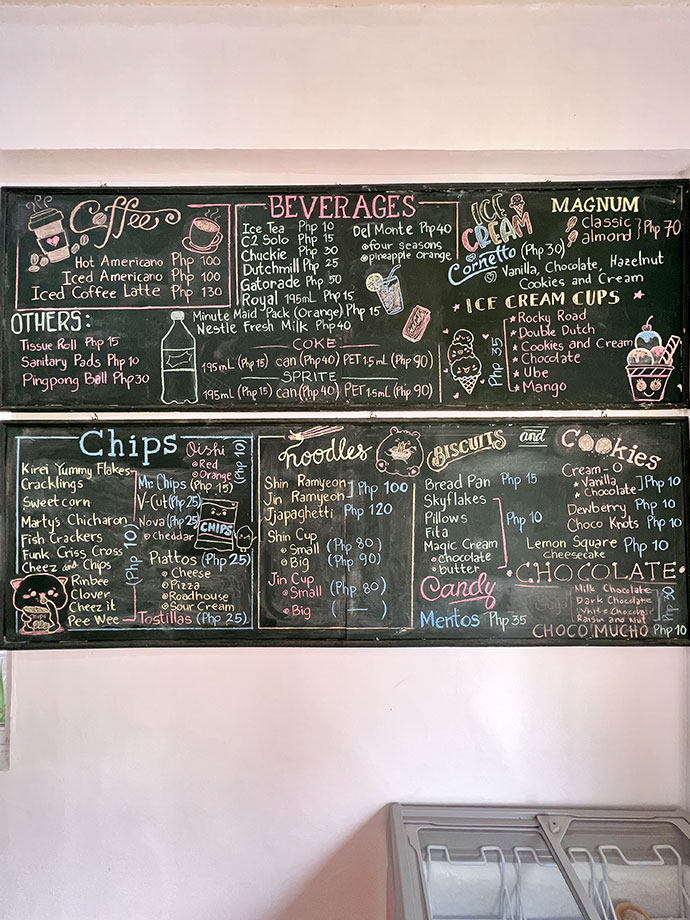 Coffee
Hot Americano Php 100
Iced Americano Php 100
Iced Coffee Latte Php 130
OTHERS:
Tissue Roll Php 15
Sanitary Pads Php 10
Pingpong Ball Php 30
BEVERAGES
Ice Tea Php 10
C2 Solo Php 15
Chuckie Php 30
Dutchmill Php 25
Gatorade Php 50
Royal 195mL Php 15
Minute Maid Pack (Orange) Php 15
Nestle Fresh Milk Php 40
Del Monte Php 40
four seasons
pineapple orange
COKE
195mL (Php 15) can (Php 40) PET 1.5mL (Php 90)
SPRITE
195mL (Php 15) can (Php 40) PET 1.5mL (Php 90)
ICE CREAM
Cornetto (Php 30)
Vanilla, Chocolate, Hazelnut
Cookies and Cream
MAGNUM
Classic
almond Php 70
ICE CREAM CUPS
Php 35
Rocky Road
Double Dutch
Cookies and Cream
Chocolate
Ube
Mango
Chips
Kirei Yummy Flakes
Cracklings
Sweetcorn
Marty's Chicharon
Fish Crackers
Funk Criss Cross
Cheez and Chips
Rinbee
Clover
Cheez it
Pee Wee
(Php 10)
Oishi
Red
Orange
(Php 10)
Mr. Chips (Php 15)
V-Cut (Php 25)
Nova (Php 25)
Cheddar
CHIPS
Piattos (Php 25)
Cheese
Pizza
Roadhouse
Sour Cream
Tostillas (Php 25)
noodles
Shin Ramyeon
Jin Ramyeon Php 100
Jjapaghetti Php 120
Shin Cup
Small (Php 80)
Big (Php 90)
Jin Cup
Small (Php 80)
Big ( — )
BISCUITS and Cookies
Bread Pan Php 15
Skyflakes
Pillows
Fita
Magic Cream
chocolate
butter
Php 10
Candy
Mentos Php 35
Cream-O
Vanilla
Chocolate Php 10
Dewberry Php 10
Choco Knots Php 10
Lemon Square Php 10
Cheesecake
CHOCOLATE
Milk Chocolate
Dark Chocolate
White Chocolate
Raisin and Nut
CHOCO MUCHO Php 10